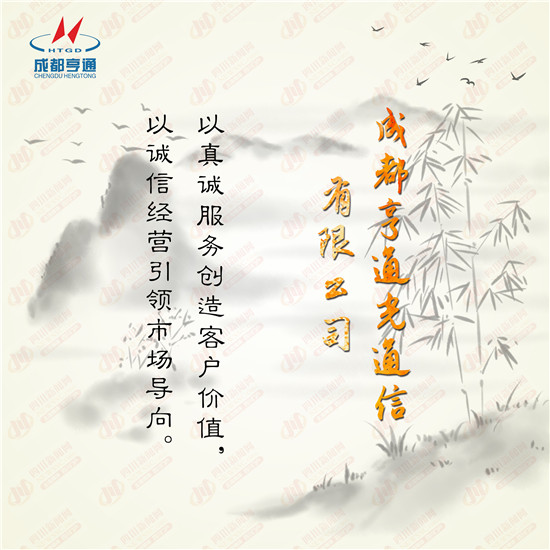 HTGD
成都亨通
CHENGDU HENGTONG
成都亨通光通信
有限公司
以真诚服务创造客户价值,
以诚信经营引领市场导向。